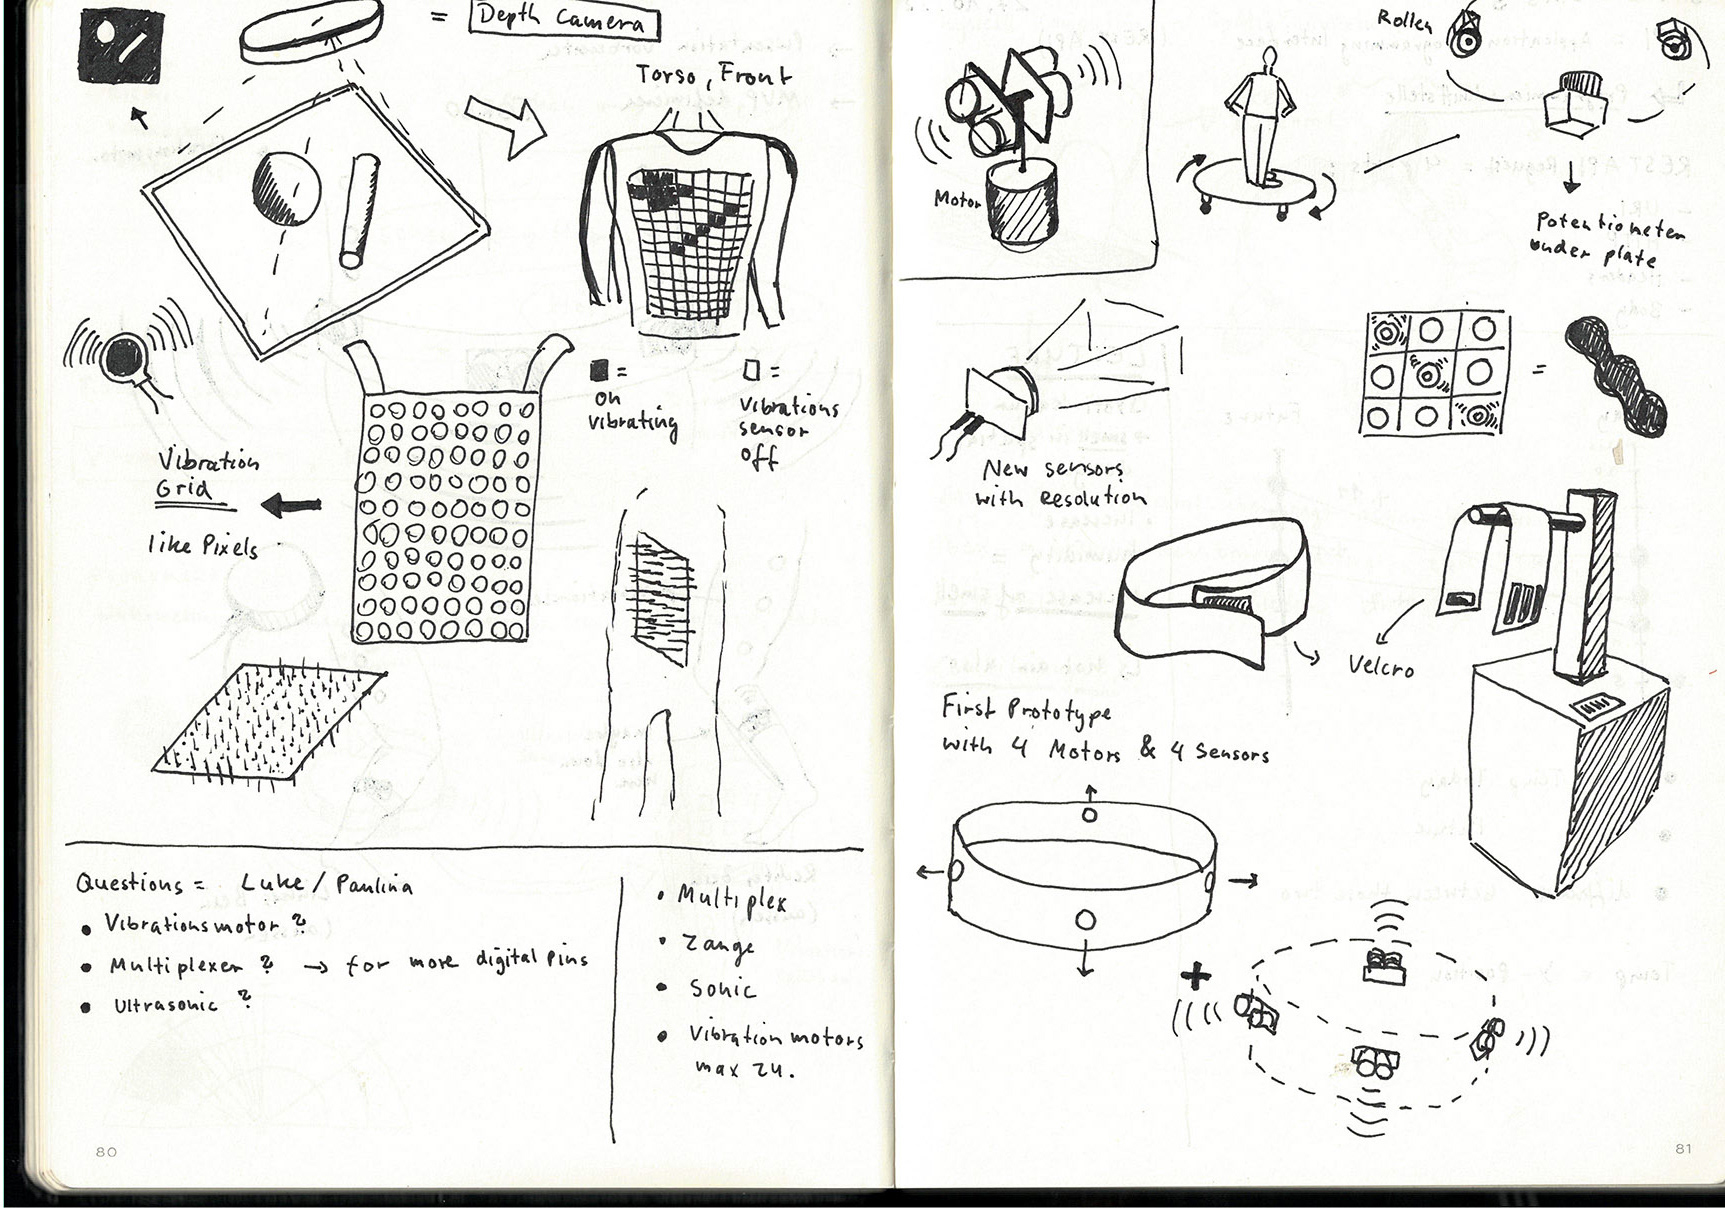 = Depth Camera
Torso, Front
■ =
on
vibrating
□ =
Vibrations
sensor
off
Vibration
Grid
like Pixels
Questions = Luke / Paulina
• Vibrationsmotor ?
• Multiplexer ? → for more digital pins
• Ultrasonic ?
• Multiplex
• Zange
• Sonic
• Vibration motors
max 24.
80
Motor
Rollen
Potentiometer
under plate
New sensors
with Resolution
=
Velcro
First Prototype
with 4 Motors & 4 Sensors
+
81